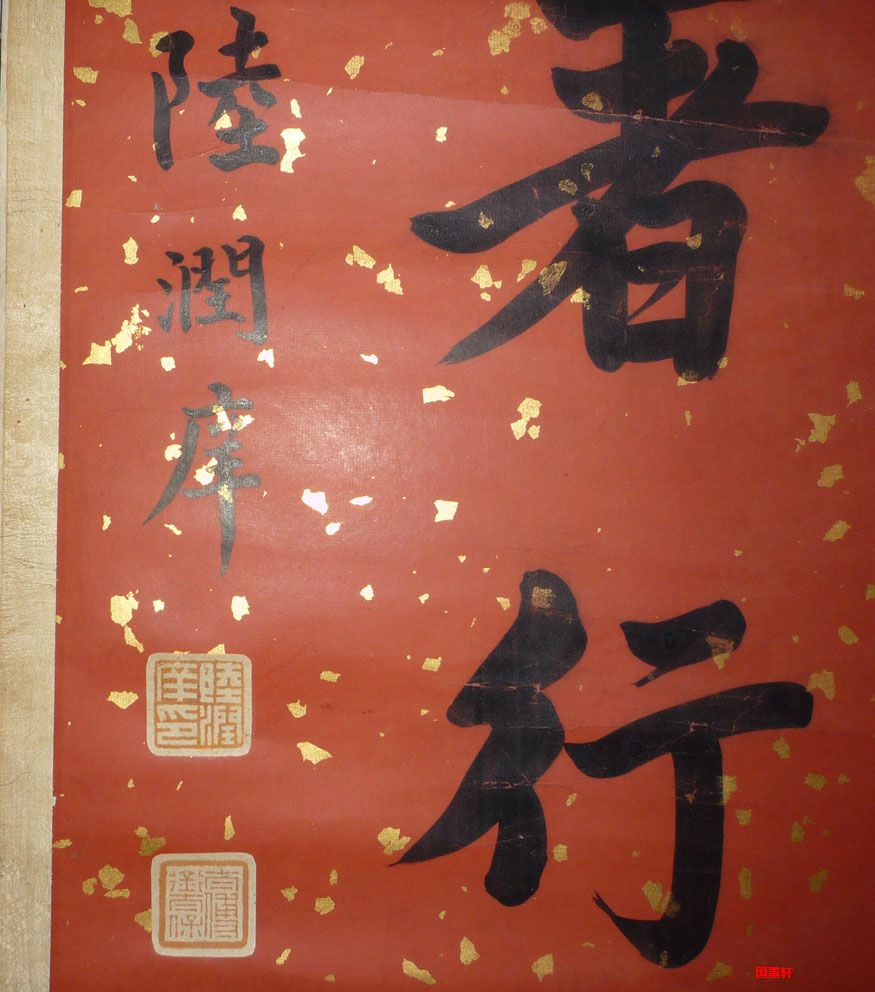 者行
陸潤庠
陸潤
庠印
国墨轩